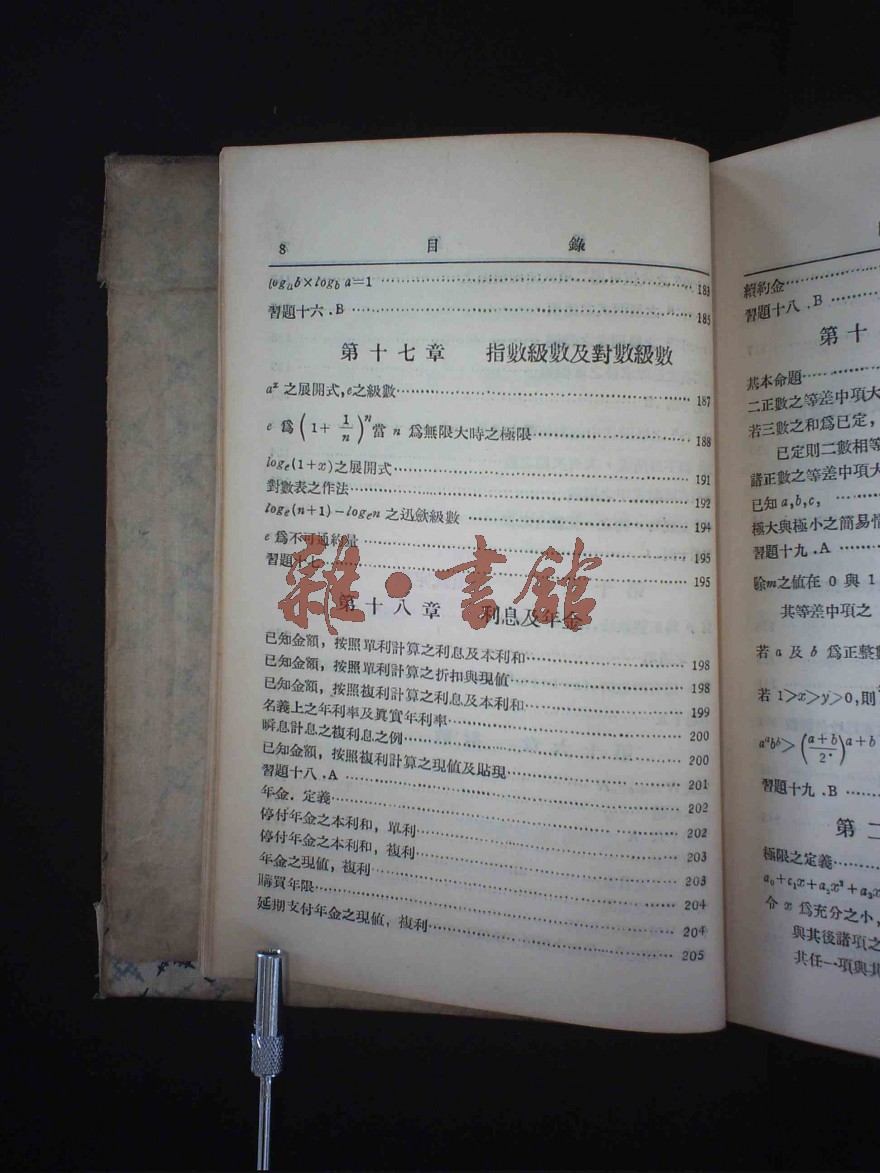 8 目 錄
log_a b×log_b a=1 …… 183
習題十六.B …… 185
第十七章 指數級數及對數級數
a^x 之展開式,e之級數 …… 187
e 爲 (1+ 1/n)^n 當 n 爲無限大時之極限 …… 188
log_e(1+x)之展開式 …… 191
對數表之作法 …… 192
log_e(n+1)−log_e n 之迅斂級數 …… 194
e 爲不可通約量 …… 195
習題十七 …… 195
雜·書館
第十八章 利息及年金
已知金額,按照單利計算之利息及本利和 …… 198
已知金額,按照單利計算之折扣與現値 …… 198
已知金額,按照複利計算之利息及本利和 …… 199
名義上之年利率及眞實年利率 …… 200
瞬息計息之複利息之例 …… 200
已知金額,按照複利計算之現値及貼現 …… 201
習題十八.A …… 202
年金.定義 …… 202
停付年金之本利和,單利 …… 203
停付年金之本利和,複利 …… 203
年金之現値,複利 …… 204
購買年限 …… 204
延期支付年金之現値,複利 …… 205
續約金 ……
習題十八.B ……
第十
基本命題 ……
二正數之等差中項大
若三數之和爲已定,
已定則二數相等
諸正數之等差中項大
已知 a,b,c, ……
極大與極小之簡易
習題十九.A ……
除m之値在 0 與 1
其等差中項之
若 a 及 b 爲正整數
若 1>x>y>0,則
a^a b^b > ((a+b)/2)^(a+b)
習題十九.B ……
第二
極限之定義 ……
令 x 爲充分之小,
與其後諸項之
其任一項與其